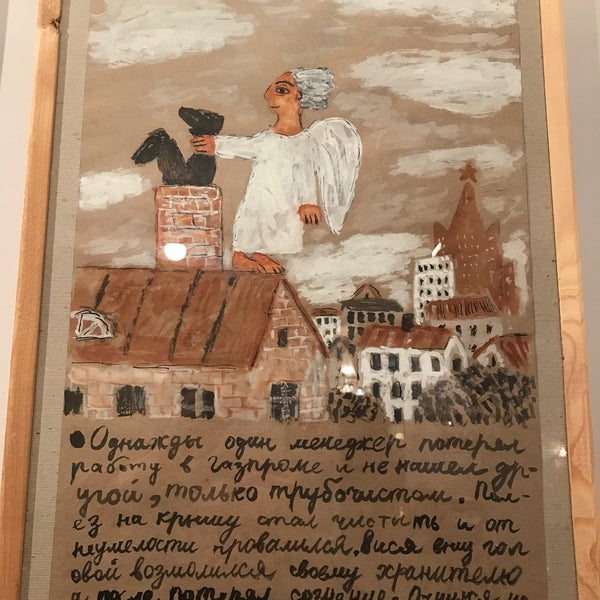 Однажды один менеджер потерял
работу в газпроме и не нашел др-
угой, только трубочистом. Пол-
ез на крышу стал чистить и от
неумелости провалился. Вися вниз гол
овой возмолился своему хранителю
а после потерял сознание. Очнулся на